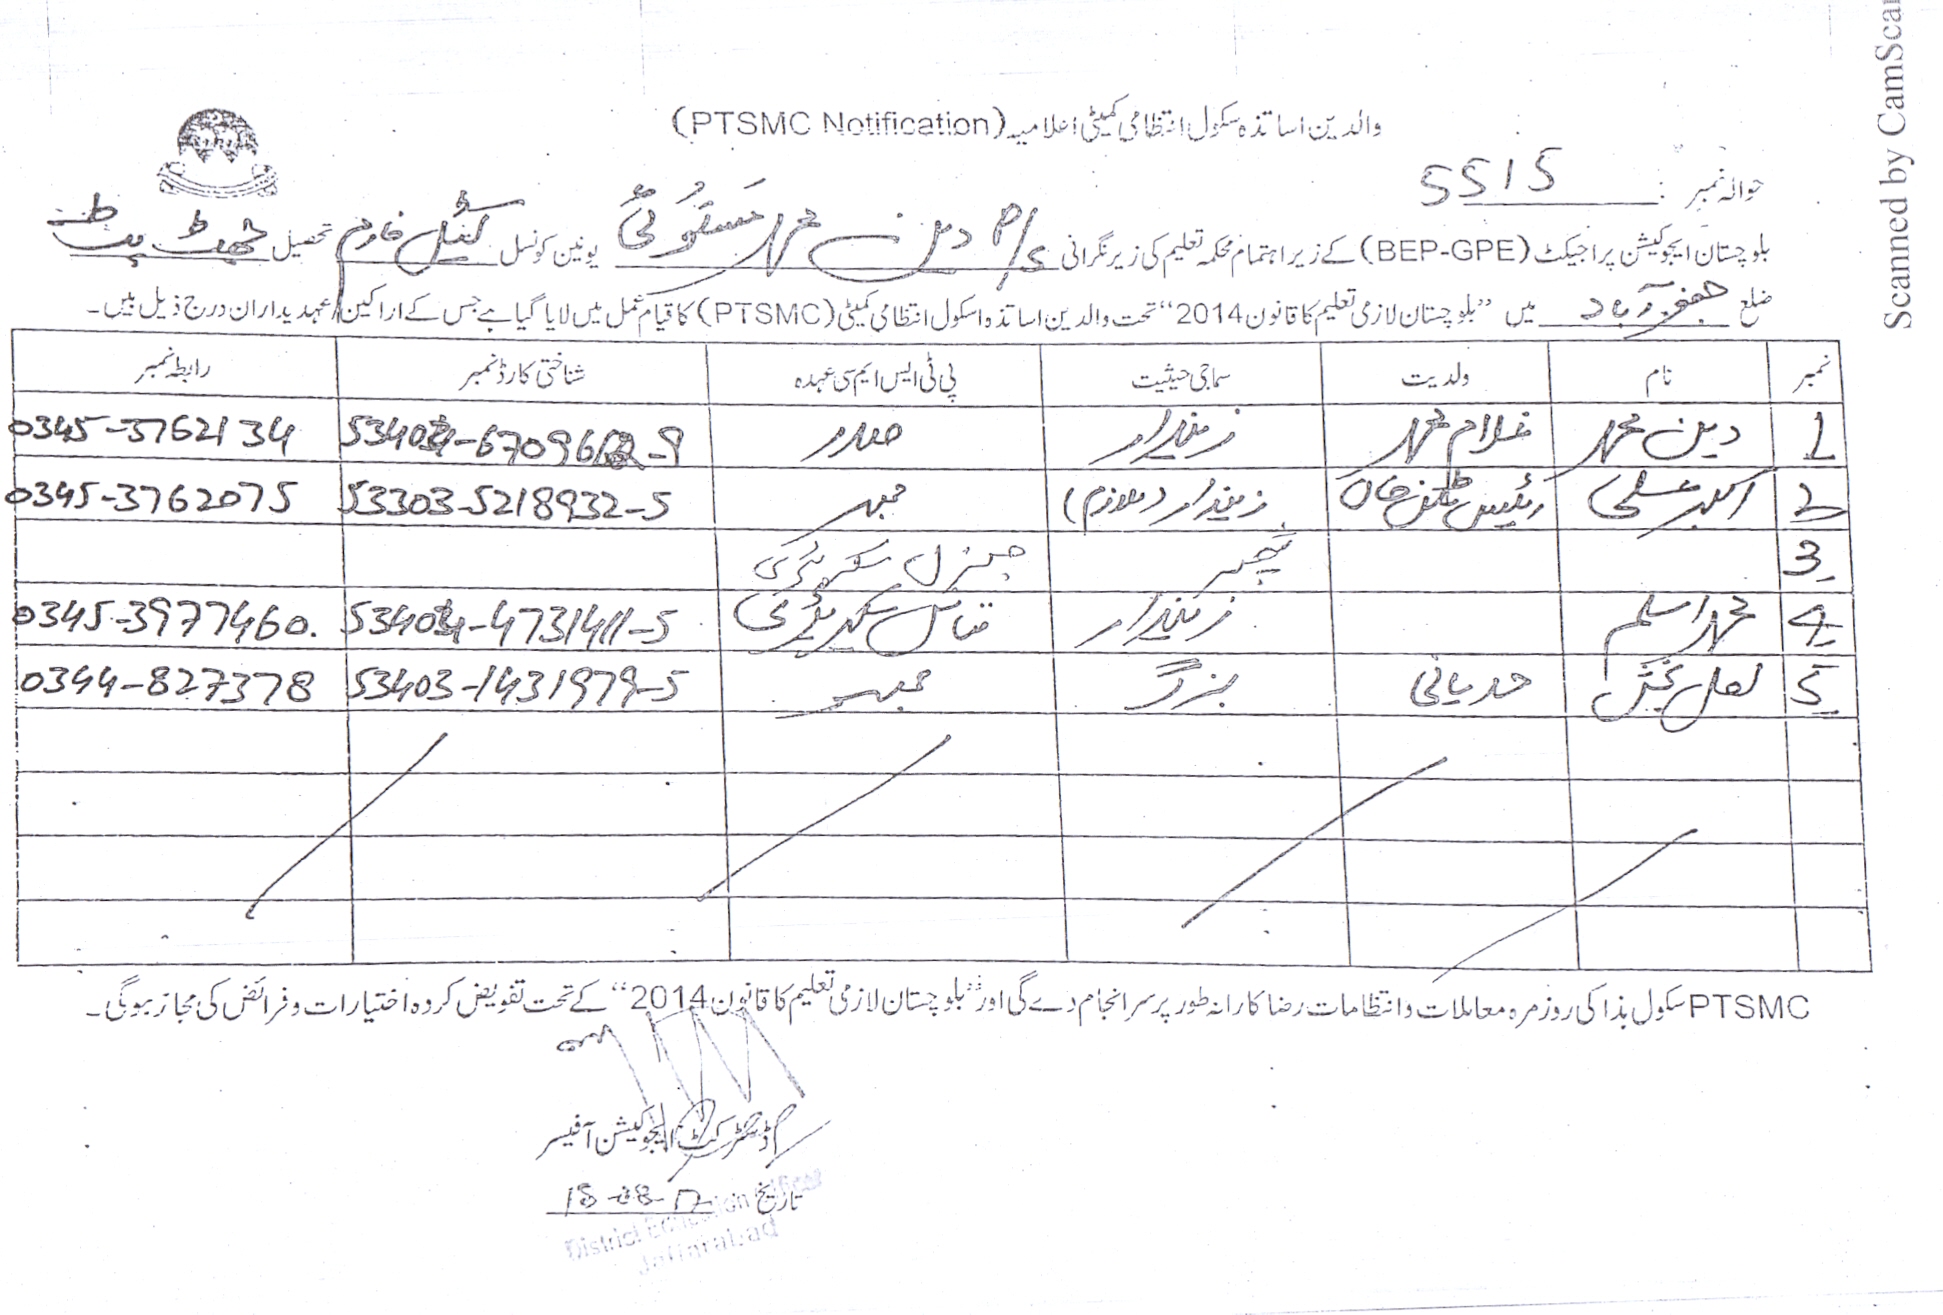 والدین اساتذہ سکول انتظامی کمیٹی اعلامیہ (PTSMC Notification)
حوالہ نمبر: 5515
بلوچستان ایجوکیشن پراجیکٹ (BEP-GPE) کے زیر اہتمام محکمہ تعلیم کی زیر نگرانی P/S دین محمد مستوئی یونین کونسل کیٹل فارم تحصیل جھٹ پٹ
ضلع جعفرآباد میں "بلوچستان لازمی تعلیم کا قانون 2014" تحت والدین اساتذہ اسکول انتظامی کمیٹی (PTSMC) کا قیام عمل میں لایا گیا ہے جس کے اراکین/عہدیداران درج ذیل ہیں۔
نمبر نام ولدیت سماجی حیثیت پی ٹی ایس ایم سی عہدہ شناختی کارڈ نمبر رابطہ نمبر
1 دین محمد غلام محمد زمیندار صدر 0345-3762134
2 اکبر علی رئیس خان زمیندار (ملازم) ممبر 53303-5218932-5 0345-3762075
3 ٹیچر جنرل سیکریٹری
4 محمد اسلم زمیندار فنانس سیکریٹری 0345-3977460
5 لعل بخش بزگر ممبر 53403-1431979-5 0344-827378
PTSMC سکول ہذا کی روزمرہ معاملات و انتظامات رضا کارانہ طور پر سر انجام دے گی اور "بلوچستان لازمی تعلیم کا قانون 2014" کے تحت تفویض کردہ اختیارات و فرائض کی مجاز ہوگی۔
ڈسٹرکٹ ایجوکیشن آفیسر
تاریخ 18-08-17
District Education Officer
Jaffarabad
Scanned by CamScan